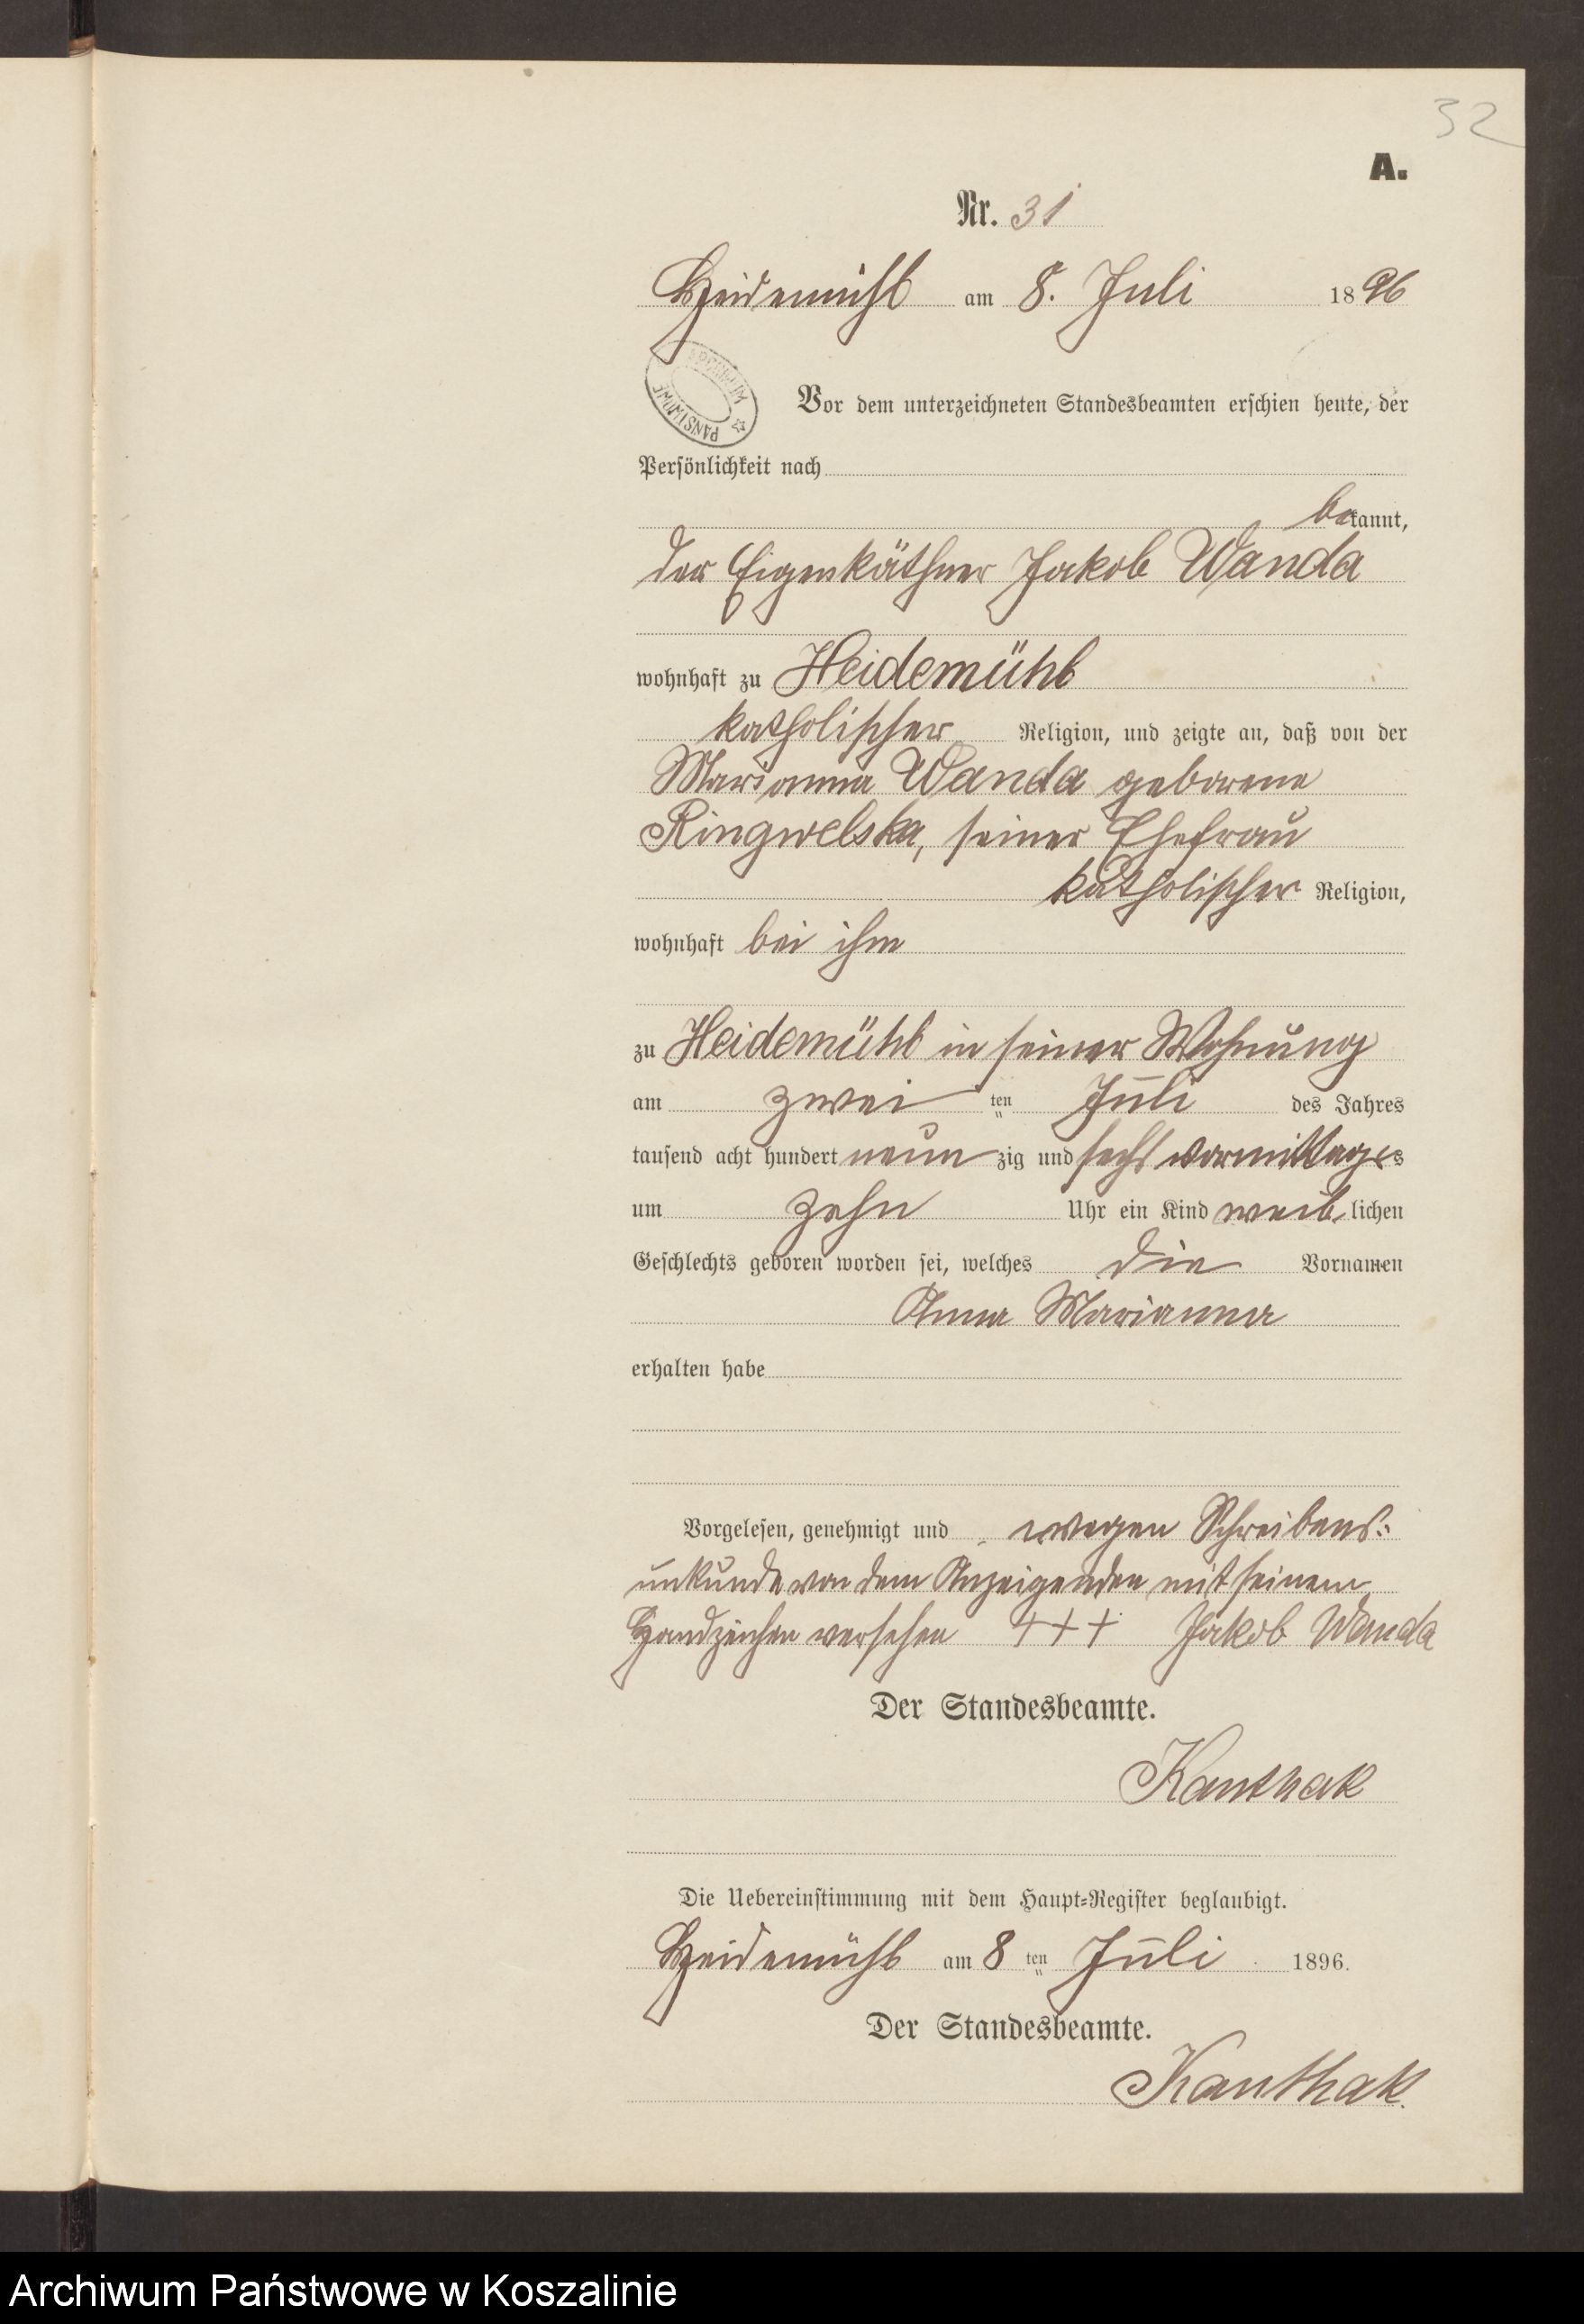 32
A.
Nr. 31
Heidemühl am 8. Juli 1896
ARCHIWUM PAŃSTWOWE
Vor dem unterzeichneten Standesbeamten erschien heute, der
Persönlichkeit nach
bekannt,
der Eigenkäthner Jakob Wanda
wohnhaft zu Heidemühl
katholischer Religion, und zeigte an, daß von der
Marianna Wanda geborene
Ringwelska, seiner Ehefrau
katholischer Religion,
wohnhaft bei ihm
zu Heidemühl in seiner Wohnung
am zwei ten Juli des Jahres
tausend acht hundert neun zig und sechs vormittags
um zehn Uhr ein Kind weib lichen
Geschlechts geboren worden sei, welches die Vornamen
Anna Marianna
erhalten habe
Vorgelesen, genehmigt und wegen Schreibens-
unkunde von dem Anzeigenden mit seinem
Handzeichen versehen +++ Jakob Wanda
Der Standesbeamte.
Kanthak
Die Uebereinstimmung mit dem Haupt-Register beglaubigt.
Heidemühl am 8 ten Juli 1896.
Der Standesbeamte.
Kanthak.
Archiwum Państwowe w Koszalinie